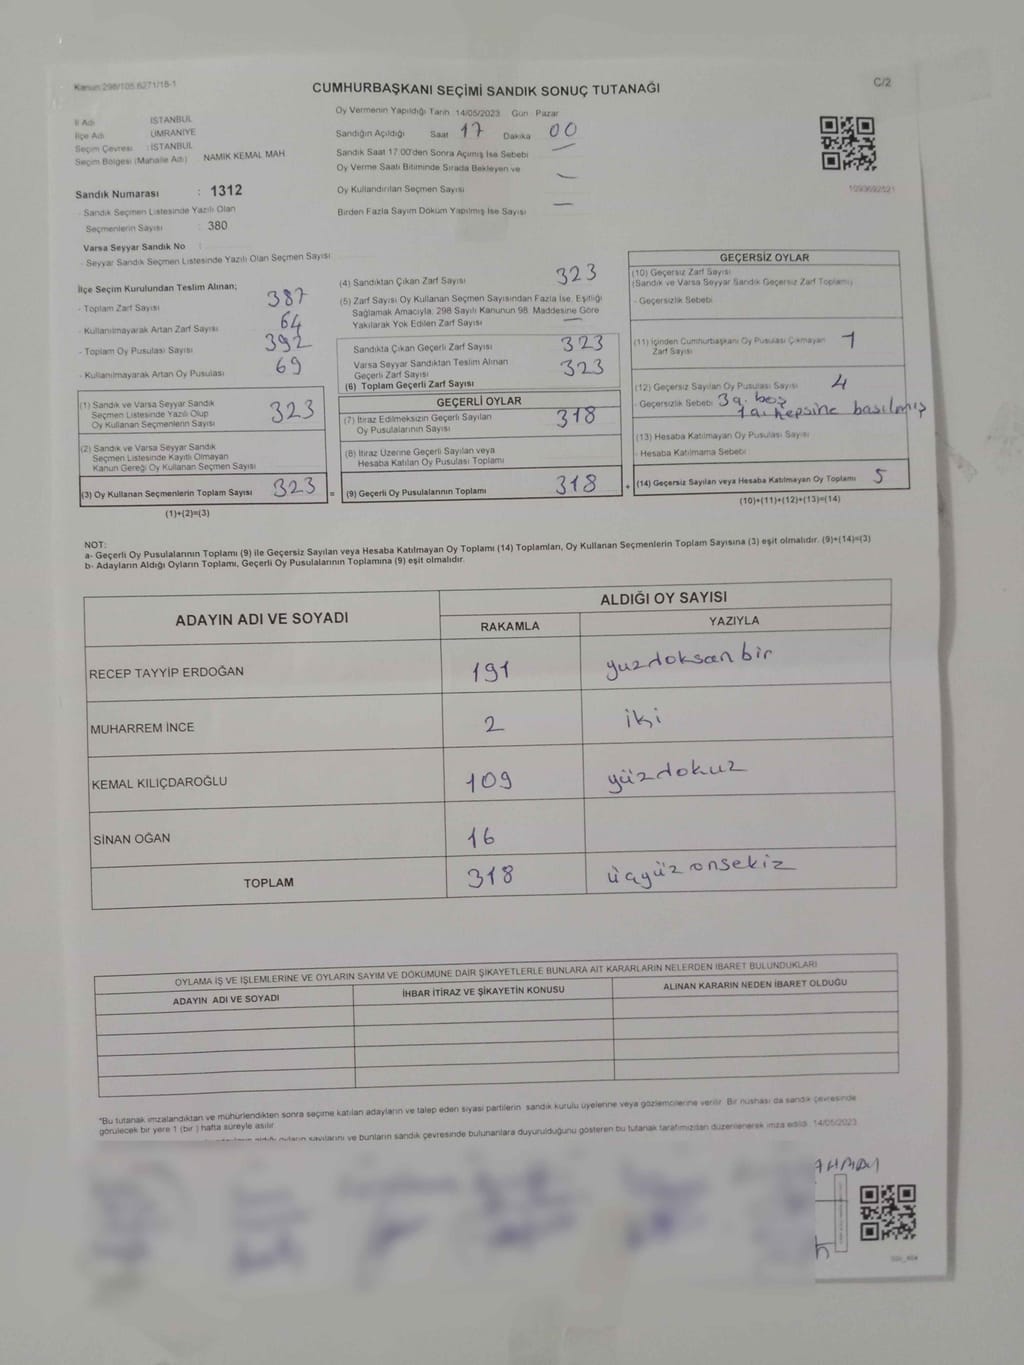 Kanun:298/105.6271/18-1
C/2
CUMHURBAŞKANI SEÇİMİ SANDIK SONUÇ TUTANAĞI
İl Adı : İSTANBUL
İlçe Adı : ÜMRANİYE
Seçim Çevresi : İSTANBUL
Seçim Bölgesi (Mahalle Adı) NAMIK KEMAL MAH
Sandık Numarası : 1312
- Sandık Seçmen Listesinde Yazılı Olan
Seçmenlerin Sayısı : 380
Varsa Seyyar Sandık No :
- Seyyar Sandık Seçmen Listesinde Yazılı Olan Seçmen Sayısı
Oy Vermenin Yapıldığı Tarih 14/05/2023 Gün Pazar
Sandığın Açıldığı Saat 17 Dakika 00
Sandık Saat 17.00'den Sonra Açılmış İse Sebebi —
Oy Verme Saati Bitiminde Sırada Bekleyen ve
Oy Kullandırılan Seçmen Sayısı —
Birden Fazla Sayım Döküm Yapılmış İse Sayısı —
1093692521
İlçe Seçim Kurulundan Teslim Alınan;
- Toplam Zarf Sayısı 387
- Kullanılmayarak Artan Zarf Sayısı 64
- Toplam Oy Pusulası Sayısı 392
- Kullanılmayarak Artan Oy Pusulası 69
(1) Sandık ve Varsa Seyyar Sandık
Seçmen Listesinde Yazılı Olup
Oy Kullanan Seçmenlerin Sayısı 323
(2) Sandık ve Varsa Seyyar Sandık
Seçmen Listesinde Kayıtlı Olmayan
Kanun Gereği Oy Kullanan Seçmen Sayısı
(3) Oy Kullanan Seçmenlerin Toplam Sayısı 323 =
(1)+(2)=(3)
(4) Sandıktan Çıkan Zarf Sayısı 323
(5) Zarf Sayısı Oy Kullanan Seçmen Sayısından Fazla İse, Eşitliği
Sağlamak Amacıyla, 298 Sayılı Kanunun 98. Maddesine Göre
Yakılarak Yok Edilen Zarf Sayısı —
Sandıkta Çıkan Geçerli Zarf Sayısı 323
Varsa Seyyar Sandıktan Teslim Alınan
Geçerli Zarf Sayısı 323
(6) Toplam Geçerli Zarf Sayısı
GEÇERLİ OYLAR
(7) İtiraz Edilmeksizin Geçerli Sayılan
Oy Pusulalarının Sayısı 318
(8) İtiraz Üzerine Geçerli Sayılan veya
Hesaba Katılan Oy Pusulası Toplamı
(9) Geçerli Oy Pusulalarının Toplamı 318 +
GEÇERSİZ OYLAR
(10) Geçersiz Zarf Sayısı
(Sandık ve Varsa Seyyar Sandık Geçersiz Zarf Toplamı)
- Geçersizlik Sebebi
(11) İçinden Cumhurbaşkanı Oy Pusulası Çıkmayan
Zarf Sayısı 1
(12) Geçersiz Sayılan Oy Pusulası Sayısı 4
- Geçersizlik Sebebi 3 a. boş
1 a. hepsine basılmış
(13) Hesaba Katılmayan Oy Pusulası Sayısı
- Hesaba Katılmama Sebebi
(14) Geçersiz Sayılan veya Hesaba Katılmayan Oy Toplamı 5
(10)+(11)+(12)+(13)=(14)
NOT:
a- Geçerli Oy Pusulalarının Toplamı (9) ile Geçersiz Sayılan veya Hesaba Katılmayan Oy Toplamı (14) Toplamları, Oy Kullanan Seçmenlerin Toplam Sayısına (3) eşit olmalıdır. (9)+(14)=(3)
b- Adayların Aldığı Oyların Toplamı, Geçerli Oy Pusulalarının Toplamına (9) eşit olmalıdır.
ADAYIN ADI VE SOYADI ALDIĞI OY SAYISI
RAKAMLA YAZIYLA
RECEP TAYYİP ERDOĞAN 191 yuzdoksan bir
MUHARREM İNCE 2 iki
KEMAL KILIÇDAROĞLU 109 yüzdokuz
SİNAN OĞAN 16
TOPLAM 318 üçyüz onsekiz
OYLAMA İŞ VE İŞLEMLERİNE VE OYLARIN SAYIM VE DÖKÜMÜNE DAİR ŞİKAYETLERLE BUNLARA AİT KARARLARIN NELERDEN İBARET BULUNDUKLARI
ADAYIN ADI VE SOYADI İHBAR İTİRAZ VE ŞİKAYETİN KONUSU ALINAN KARARIN NEDEN İBARET OLDUĞU
*Bu tutanak imzalandıktan ve mühürlendikten sonra seçime katılan adayların ve talep eden siyasi partilerin sandık kurulu üyelerine veya gözlemcilerine verilir. Bir nüshası da sandık çevresinde
görülecek bir yere 1 (bir ) hafta süreyle asılır.
aldığı oyların sayılarını ve bunların sandık çevresinde bulunanlara duyurulduğunu gösteren bu tutanak tarafımızdan düzenlenerek imza edildi. 14/05/2023